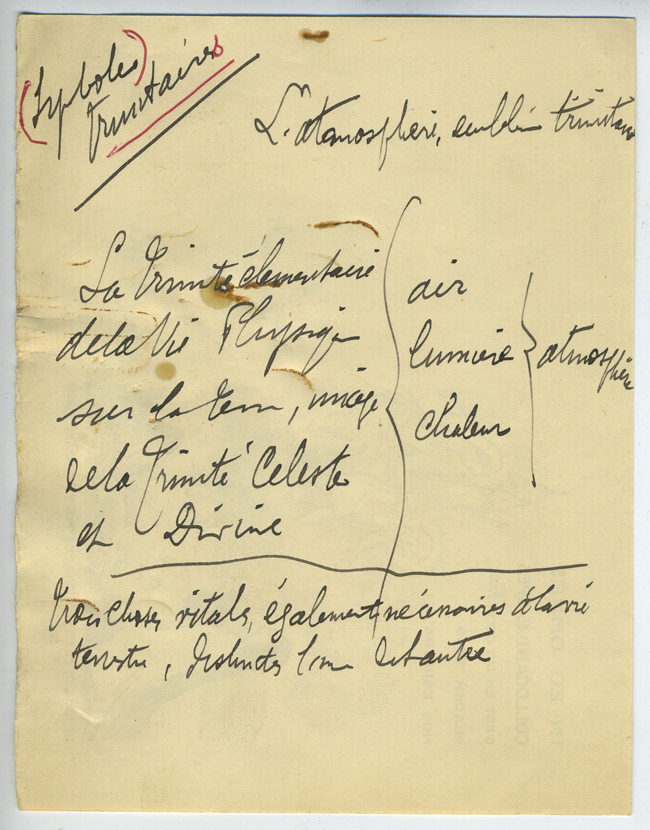 (Symboles)
trinitaires
L'atmosphère, emblème trinitaire
La Trinité élémentaire
de la Vie Physique
sur la terre, image
de la Trinité Céleste
et Divine
air
lumière
chaleur
atmosphère
Trois choses vitales, également nécessaires à la vie
terrestre, distinctes l'une de l'autre